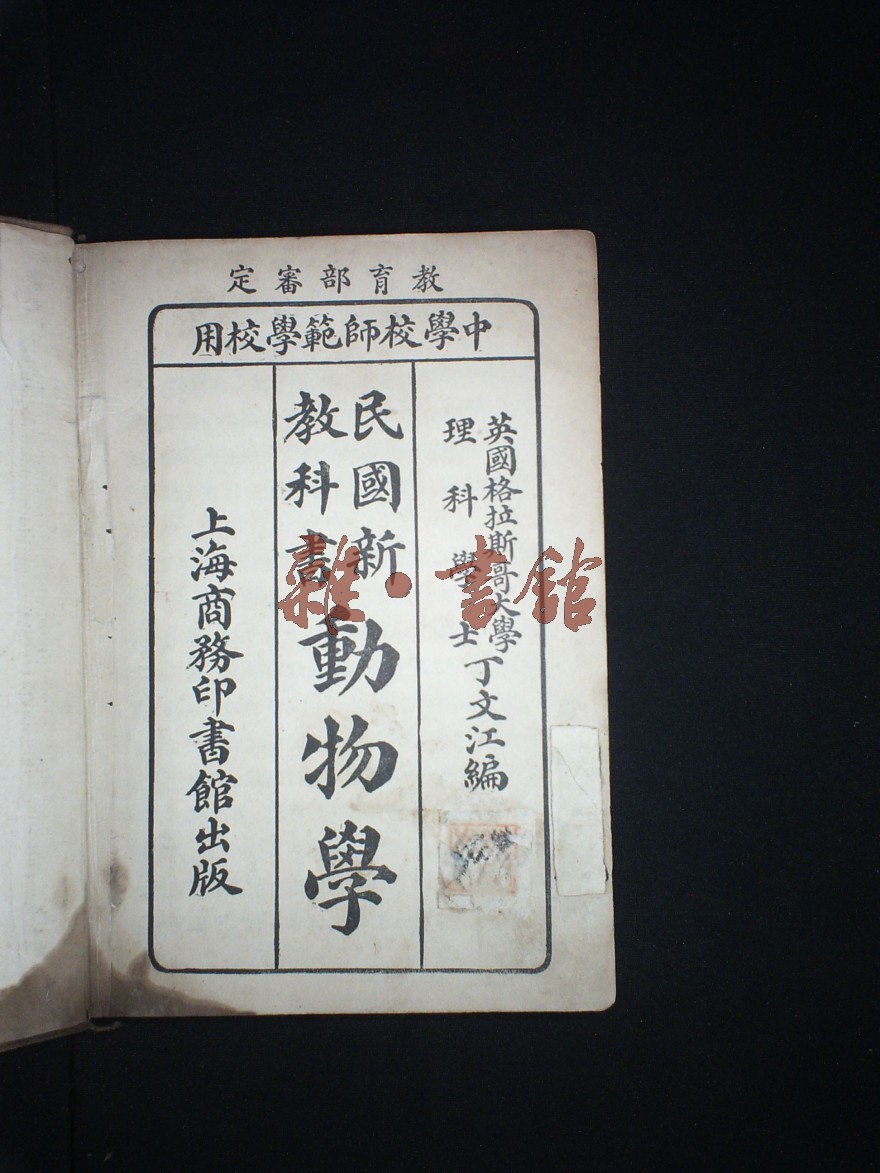 教育部審定
中學校師範學校用
英國格拉斯哥大學
理科學士
丁文江編
民國新
教科書
動物學
上海商務印書館出版
雜·書館